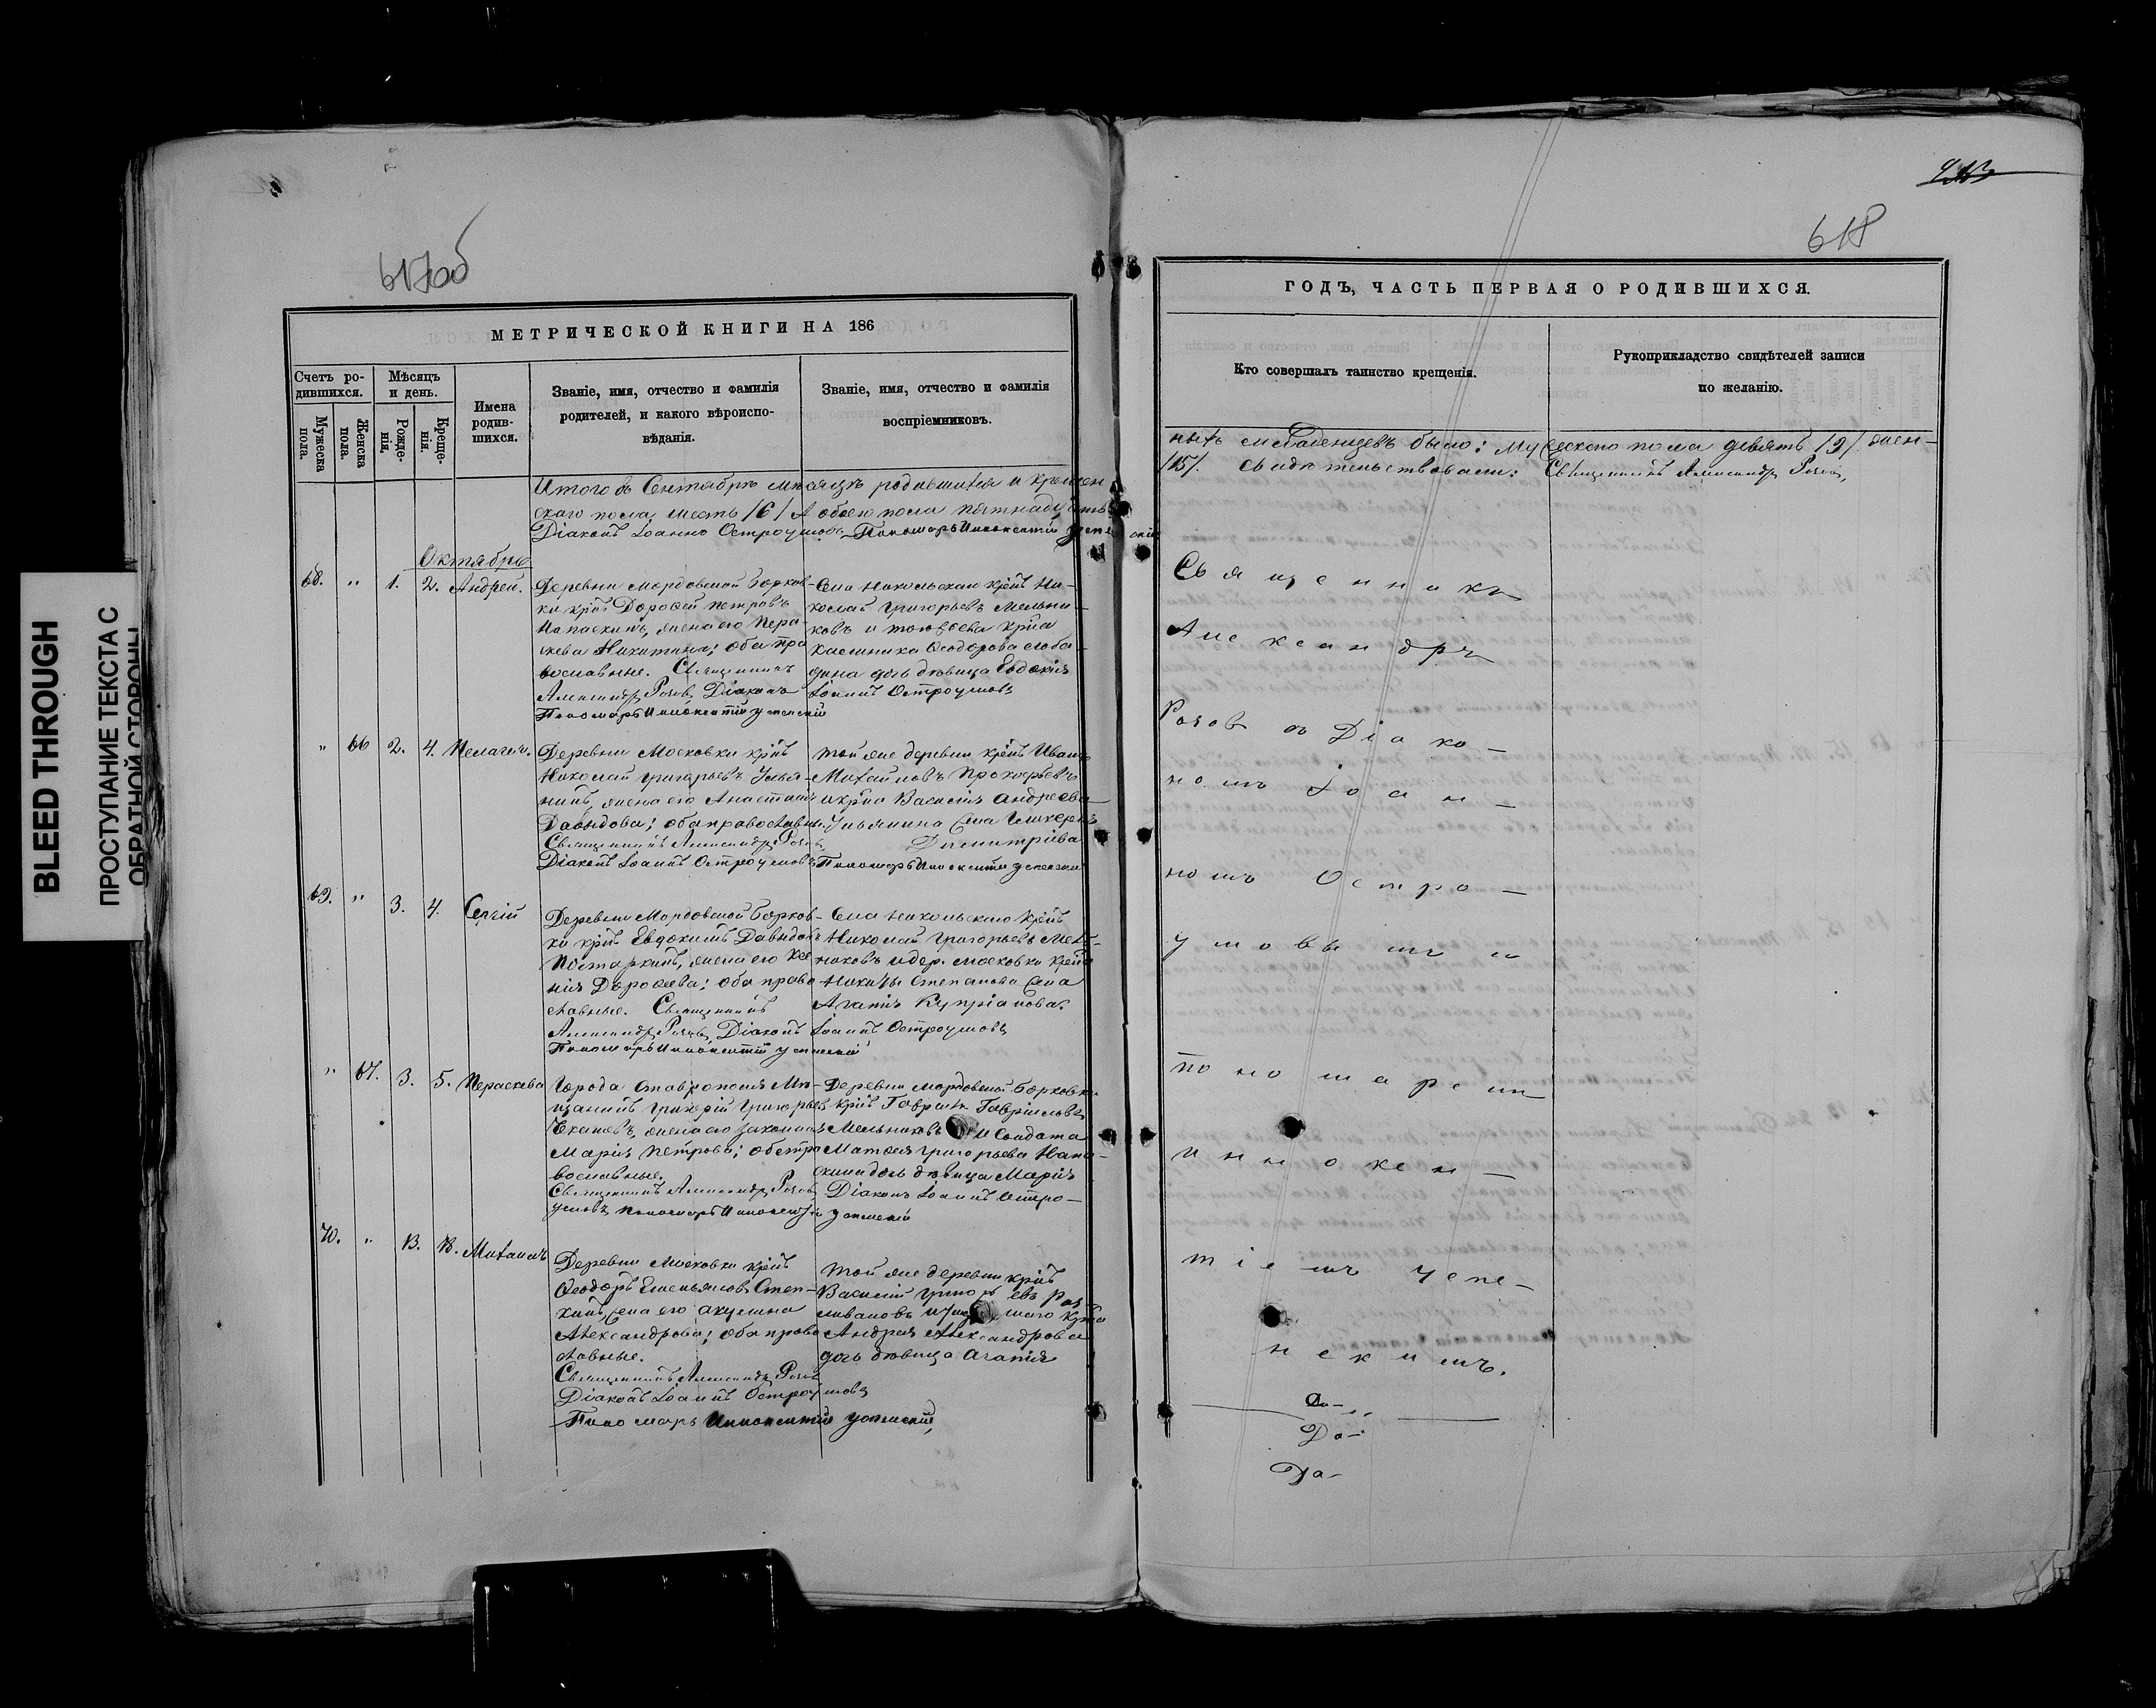 BLEED THROUGH
ПРОСТУПАНИЕ ТЕКСТА С
ОБРАТНОЙ СТОРОНЫ
617об
МЕТРИЧЕСКОЙ КНИГИ НА 186
Счетъ ро-
дившихся.
Мужеска
пола.
Женска
пола.
Мѣсяцъ
и день.
Рожде-
нія.
Креще-
нія.
Имена
родив-
шихся.
Званіе, имя, отчество и фамилія
родителей, и какого вѣроиспо-
вѣданія.
Званіе, имя, отчество и фамилія
воспріемниковъ.
Итого въ Сентябрѣ мѣсяцѣ родившихся и крещен
скаго пола шесть /6/ А обоего пола пятнадцать
Діаконъ Іоаннъ Остроумовъ Пономарь Иннокентій Успенскій
Октябрь
68. " 1. 2. Андрей.
Деревни Мордовской Борков-
ки крнъ Дорофей Петровъ
жена его Пара-
скева Никитина; оба пра
вославные. Священникъ
Александръ Розовъ, Діаконъ
Пономарь Иннокентій Успенскій
Села Никольскаго крнъ Ни-
колай Григорьевъ Мельни-
ковъ и
Ѳеодорова
дочь дѣвица Евдокія
Іоаннъ Остроумовъ
" 66 2. 4. Пелагея.
Деревни Московки крнъ
Николай Григорьевъ Улья-
нинъ, жена его Анастасія
Давыдова; оба православные.
Священникъ Александръ Розовъ,
Діаконъ Іоаннъ Остроумовъ
той же деревни крнъ Иванъ
Михайловъ Прохорьевъ
и крна Василія Андреева
Ульянина жена Гликерія
Димитріева
Пономарь Иннокентій Успенскій
69. " 3. 4. Сергій
Деревни Мордовской Борков-
ки крнъ Евдокимъ Давыдовъ
жена его Ксе
нія Дорофеева; оба право
славные. Священникъ
Александръ Розовъ, Діаконъ
Пономарь Иннокентій Успенскій
Села Никольскаго крнъ
Николай Григорьевъ Мель-
никовъ и дер. Московки крна
Никиты Степанова жена
Агапія Купріанова.
Іоаннъ Остроумовъ
" 67. 3. 5. Параскева
Города Ставрополя Мѣ-
щанинъ Григорій Григорьевъ
жена его законная
Марія Петрова; оба пра
вославные.
Священникъ Александръ Розовъ,
умовъ Пономарь Иннокентій
Деревни Мордовской Борковки
крнъ Гавріилъ Гавриловъ
Мельниковъ и Солдата
Матвея Григорьева
дочь дѣвица Марія
Діаконъ Іоаннъ Остро-
Успенскій
70. " Михаилъ
Деревни Московки крнъ
Ѳеодоръ Емельяновъ Степ-
кинъ, жена его Акулина
Александрова; оба право
славные.
Священникъ Александръ Розовъ
Діаконъ Іоаннъ Остроумовъ
Пономарь Иннокентій Успенскій,
той же деревни крнъ
Василій Григорьевъ
Андрея Александрова
дочь дѣвица Агапія
618
ГОДЪ, ЧАСТЬ ПЕРВАЯ О РОДИВШИХСЯ.
Кто совершалъ таинство крещенія.
Рукоприкладство свидѣтелей записи
по желанію.
ныхъ младенцевъ было: Мужескаго пола девять /9/ жен-
/15/. Свидѣтельствовали: Священникъ Александръ Розовъ,
Священникъ
Александръ
Розовъ съ Діако-
номъ Іоан-
номъ Остро-
умовымъ и
пономаремъ
Иннокен-
тіемъ Успе-
нскимъ.